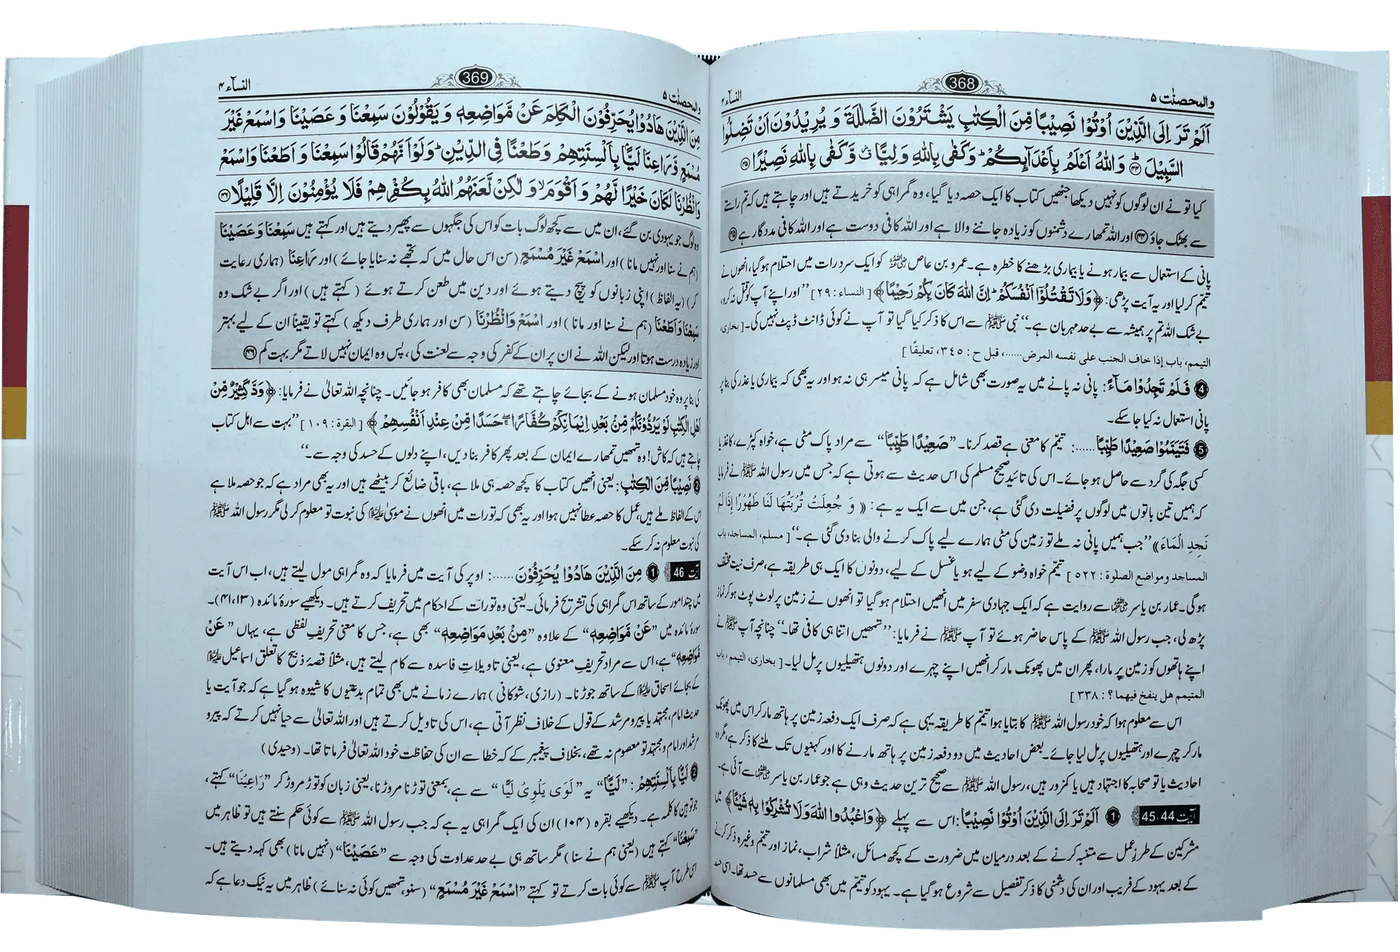 والمحصنٰت ۵
368
النسآء ۴
اَلَمْ تَرَ اِلَى الَّذِيْنَ اُوْتُوْا نَصِيْبًا مِّنَ الْكِتٰبِ يَشْتَرُوْنَ الضَّلٰلَةَ وَ يُرِيْدُوْنَ اَنْ تَضِلُّوا
السَّبِيْلَ ﴿۴۴﴾ وَاللّٰهُ اَعْلَمُ بِاَعْدَآىِٕكُمْ وَكَفٰى بِاللّٰهِ وَلِيًّا وَّكَفٰى بِاللّٰهِ نَصِيْرًا ﴿۴۵﴾
کیا تو نے ان لوگوں کو نہیں دیکھا جنھیں کتاب کا ایک حصہ دیا گیا، وہ گمراہی کو خریدتے ہیں اور چاہتے ہیں کہ تم راستے
سے بھٹک جاؤ ﴿۴۴﴾ اور اللہ تمھارے دشمنوں کو زیادہ جاننے والا ہے اور اللہ کافی دوست ہے اور اللہ کافی مددگار ہے ﴿۴۵﴾
پانی کے استعمال سے بیمار ہونے یا بیماری بڑھنے کا خطرہ ہے۔ عمرو بن عاص ؓ کو ایک سرد رات میں احتلام ہو گیا، انھوں نے
تیمم کر لیا اور یہ آیت پڑھی: ﴿وَلَا تَقْتُلُوْٓا اَنْفُسَكُمْ اِنَّ اللّٰهَ كَانَ بِكُمْ رَحِيْمًا﴾ [النساء : ۲۹] ”اور اپنے آپ کو قتل نہ کرو،
بے شک اللہ تم پر ہمیشہ سے بے حد مہربان ہے۔“ نبی ﷺ سے اس کا ذکر کیا گیا تو آپ نے کوئی ڈانٹ ڈپٹ نہیں کی۔ [بخاری،
التیمم، باب إذا خاف الجنب على نفسه المرض......، قبل ح : ۳۴۵، تعلیقًا]
4 فَلَمْ تَجِدُوْا مَآءً: پانی نہ پانے میں یہ صورت بھی شامل ہے کہ پانی میسر ہی نہ ہو اور یہ بھی کہ بیماری یا عذر کی بنا پر
پانی استعمال نہ کیا جا سکے۔
5 فَتَيَمَّمُوْا صَعِيْدًا طَيِّبًا......: تیمم کا معنی ہے قصد کرنا۔ ”صَعِيْدًا طَيِّبًا“ سے مراد پاک مٹی ہے، خواہ کپڑے، کاغذ یا
کسی جگہ کی گرد سے حاصل ہو جائے۔ اس کی تائید صحیح مسلم کی اس حدیث سے ہوتی ہے کہ جس میں رسول اللہ ﷺ نے فرمایا
کہ ہمیں تین باتوں میں لوگوں پر فضیلت دی گئی ہے، جن میں سے ایک یہ ہے: «وَ جُعِلَتْ تُرْبَتُهَا لَنَا طَهُوْرًا إِذَا لَمْ
نَجِدِ الْمَاءَ» ”جب ہمیں پانی نہ ملے تو زمین کی مٹی ہمارے لیے پاک کرنے والی بنا دی گئی ہے۔“ [مسلم، المساجد، باب
المساجد ومواضع الصلوة : ۵۲۲] تیمم خواہ وضو کے لیے ہو یا غسل کے لیے، دونوں کا ایک ہی طریقہ ہے، صرف نیت مختلف
ہو گی۔ عمار بن یاسر ؓ سے روایت ہے کہ ایک جہادی سفر میں انھیں احتلام ہو گیا تو انھوں نے زمین پر لوٹ پوٹ ہو کر نماز
پڑھ لی، جب رسول اللہ ﷺ کے پاس حاضر ہوئے تو آپ ﷺ نے فرمایا: ”تمھیں اتنا ہی کافی تھا۔“ چنانچہ آپ ﷺ نے
اپنے ہاتھوں کو زمین پر مارا، پھر ان میں پھونک مار کر انھیں اپنے چہرے اور دونوں ہتھیلیوں پر مل لیا۔ [بخاری، التیمم، باب
المتیمم هل ینفخ فیهما؟ : ۳۳۸]
اس سے معلوم ہوا کہ خود رسول اللہ ﷺ کا بتایا ہوا تیمم کا طریقہ یہی ہے کہ صرف ایک دفعہ زمین پر ہاتھ مار کر اس میں پھونک
مار کر چہرے اور ہتھیلیوں پر مل لیا جائے۔ بعض احادیث میں دو دفعہ زمین پر ہاتھ مارنے کا اور کہنیوں تک ملنے کا ذکر ہے، مگر وہ
احادیث یا تو صحابہ کا اجتہاد ہیں یا کمزور ہیں، رسول اللہ ﷺ سے صحیح ترین حدیث وہی ہے جو عمار بن یاسر ؓ سے آئی ہے۔
آیت 45،44 1 اَلَمْ تَرَ اِلَى الَّذِيْنَ اُوْتُوْا نَصِيْبًا: اس سے پہلے ﴿وَاعْبُدُوا اللّٰهَ وَلَا تُشْرِكُوْا بِهٖ شَيْـًٔا﴾ میں
مشرکین کے طرز عمل سے متنبہ کرنے کے بعد درمیان میں ضرورت کے کچھ مسائل، مثلاً شراب، نماز اور تیمم وغیرہ ذکر کرنے
کے بعد یہود کے فریب اور ان کی دشمنی کا ذکر تفصیل سے شروع ہو گیا ہے۔ یہود کو تیمم میں بھی مسلمانوں سے حسد تھا، اسی حسد
369
النسآء ۴
والمحصنٰت ۵
مِنَ الَّذِيْنَ هَادُوْا يُحَرِّفُوْنَ الْكَلِمَ عَنْ مَّوَاضِعِهٖ وَ يَقُوْلُوْنَ سَمِعْنَا وَ عَصَيْنَا وَ اسْمَعْ غَيْرَ
مُسْمَعٍ وَّ رَاعِنَا لَيًّۢا بِاَلْسِنَتِهِمْ وَ طَعْنًا فِي الدِّيْنِ وَلَوْ اَنَّهُمْ قَالُوْا سَمِعْنَا وَ اَطَعْنَا وَ اسْمَعْ
وَ انْظُرْنَا لَكَانَ خَيْرًا لَّهُمْ وَ اَقْوَمَ وَ لٰكِنْ لَّعَنَهُمُ اللّٰهُ بِكُفْرِهِمْ فَلَا يُؤْمِنُوْنَ اِلَّا قَلِيْلًا ﴿۴۶﴾
وہ لوگ جو یہودی بن گئے، ان میں سے کچھ لوگ بات کو اس کی جگہوں سے پھیر دیتے ہیں اور کہتے ہیں سَمِعْنَا وَ عَصَيْنَا
(ہم نے سنا اور نہیں مانا) اور اسْمَعْ غَيْرَ مُسْمَعٍ (سن اس حال میں کہ تجھے نہ سنایا جائے) اور رَاعِنَا (ہماری رعایت
کر) (یہ الفاظ) اپنی زبانوں کو پیچ دیتے ہوئے اور دین میں طعن کرتے ہوئے (کہتے ہیں) اور اگر بے شک وہ
سَمِعْنَا وَ اَطَعْنَا (ہم نے سنا اور مانا) اور اسْمَعْ وَ انْظُرْنَا (سن اور ہماری طرف دیکھ) کہتے تو یقیناً ان کے لیے بہتر
اور زیادہ درست ہوتا اور لیکن اللہ نے ان پر ان کے کفر کی وجہ سے لعنت کی، پس وہ ایمان نہیں لاتے مگر بہت کم ﴿۴۶﴾
کی بنا پر وہ خود مسلمان ہونے کے بجائے چاہتے تھے کہ مسلمان بھی کافر ہو جائیں۔ چنانچہ اللہ تعالیٰ نے فرمایا: ﴿وَدَّ كَثِيْرٌ مِّنْ
اَهْلِ الْكِتٰبِ لَوْ يَرُدُّوْنَكُمْ مِّنْۢ بَعْدِ اِيْمَانِكُمْ كُفَّارًا حَسَدًا مِّنْ عِنْدِ اَنْفُسِهِمْ﴾ [البقرة : ۱۰۹] ”بہت سے اہل کتاب
چاہتے ہیں کہ کاش! وہ تمھیں تمھارے ایمان کے بعد پھر کافر بنا دیں، اپنے دلوں کے حسد کی وجہ سے۔“
2 نَصِيْبًا مِّنَ الْكِتٰبِ: یعنی انھیں کتاب کا کچھ حصہ ہی ملا ہے، باقی ضائع کر بیٹھے ہیں اور یہ بھی مراد ہے کہ جو حصہ ملا ہے
اس کے الفاظ ملے ہیں عمل کا حصہ عطا نہیں ہوا اور یہ بھی کہ تورات میں انھوں نے موسیٰ ؑ کی نبوت تو معلوم کر لی مگر رسول اللہ ﷺ
کی نبوت معلوم نہ کر سکے۔
آیت 46 1 مِنَ الَّذِيْنَ هَادُوْا يُحَرِّفُوْنَ......: اوپر کی آیت میں فرمایا کہ وہ گمراہی مول لیتے ہیں، اب اس آیت
میں چند امور کے ساتھ اس گمراہی کی تشریح فرمائی۔ یعنی وہ تورات کے احکام میں تحریف کرتے ہیں۔ دیکھیے سورۂ مائدہ (۴۱،۱۳)۔
سورۂ مائدہ میں ”عَنْ مَّوَاضِعِهٖ“ کے علاوہ ”مِنْۢ بَعْدِ مَوَاضِعِهٖ“ بھی ہے، جس کا معنی تحریفِ لفظی ہے، یہاں ”عَنْ
مَّوَاضِعِهٖ“ ہے، اس سے مراد تحریفِ معنوی ہے، یعنی تاویلات فاسدہ سے کام لیتے ہیں، مثلاً قصۂ ذبیح کا تعلق اسماعیل ؑ
کے بجائے اسحاق ؑ کے ساتھ جوڑنا۔ (رازی، شوکانی) ہمارے زمانے میں بھی تمام بدعتیوں کا شیوہ ہو گیا ہے کہ جو آیت یا
حدیث امام، مجتہد یا پیر و مرشد کے قول کے خلاف نظر آتی ہے، اس کی تاویل کرتے ہیں اور اللہ تعالیٰ سے حیا نہیں کرتے کہ پیر و
مرشد اور امام و مجتہد تو معصوم نہ تھے، بخلاف پیغمبر کے کہ خطا سے ان کی حفاظت خود اللہ تعالیٰ فرماتا تھا۔ (وحیدی)
2 لَيًّۢا بِاَلْسِنَتِهِمْ: ”لَيًّا“ یہ ”لَوَى يَلْوِيْ لَيًّا“ سے ہے، بمعنی توڑنا مروڑنا، یعنی زبان کو توڑ مروڑ کر ”رَاعِيْنَا“ کہتے،
جو توہین کا کلمہ ہے۔ دیکھیے بقرہ (۱۰۴) ان کی ایک گمراہی یہ ہے کہ جب رسول اللہ ﷺ سے کوئی حکم سنتے ہیں تو ظاہر میں
”سَمِعْنَا“ کہتے ہیں (یعنی ہم نے سنا) مگر ساتھ ہی بے حد عداوت کی وجہ سے ”عَصَيْنَا“ (نہیں مانا) بھی کہہ دیتے ہیں۔
اسی طرح آپ ﷺ سے کوئی بات کرتے تو کہتے ”اسْمَعْ غَيْرَ مُسْمَعٍ“ (سنو، تمھیں کوئی نہ سنائے) ظاہر میں یہ نیک دعا ہے کہ